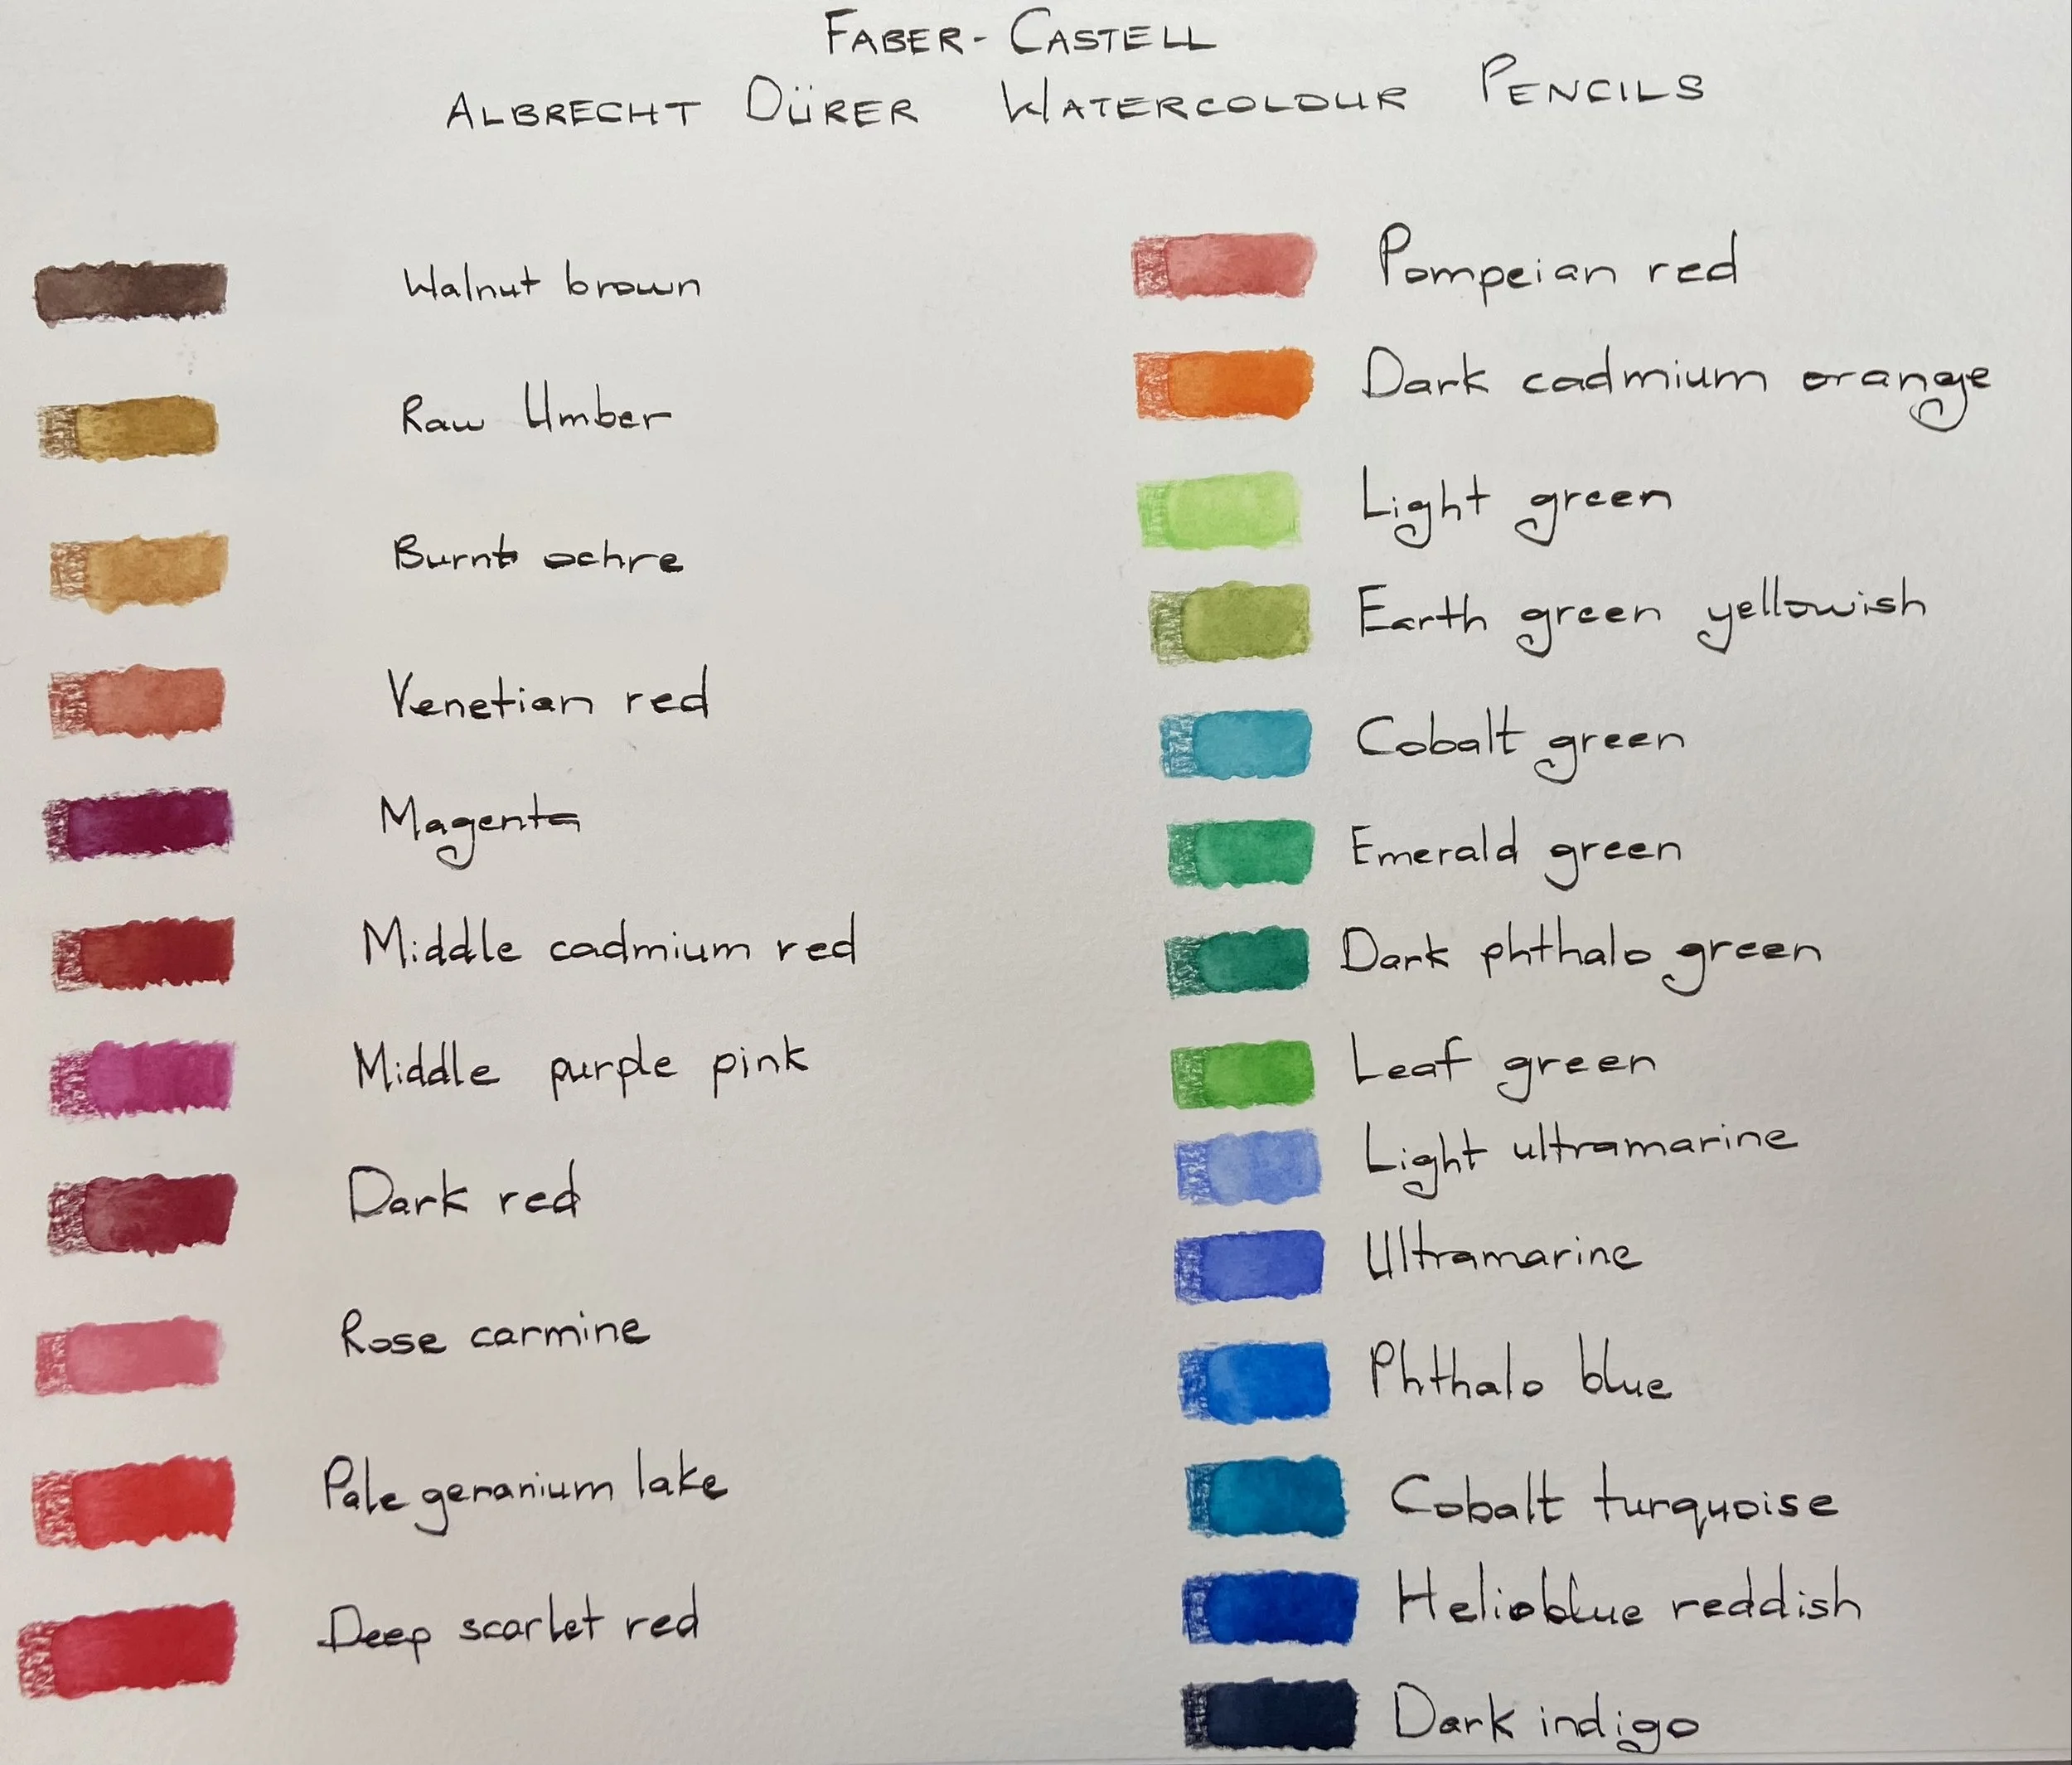 FABER-CASTELL
ALBRECHT DÜRER WATERCOLOUR PENCILS
Walnut brown
Raw Umber
Burnt ochre
Venetian red
Magenta
Middle cadmium red
Middle purple pink
Dark red
Rose carmine
Pale geranium lake
Deep scarlet red
Pompeian red
Dark cadmium orange
Light green
Earth green yellowish
Cobalt green
Emerald green
Dark phthalo green
Leaf green
Light ultramarine
Ultramarine
Phthalo blue
Cobalt turquoise
Helioblue reddish
Dark indigo